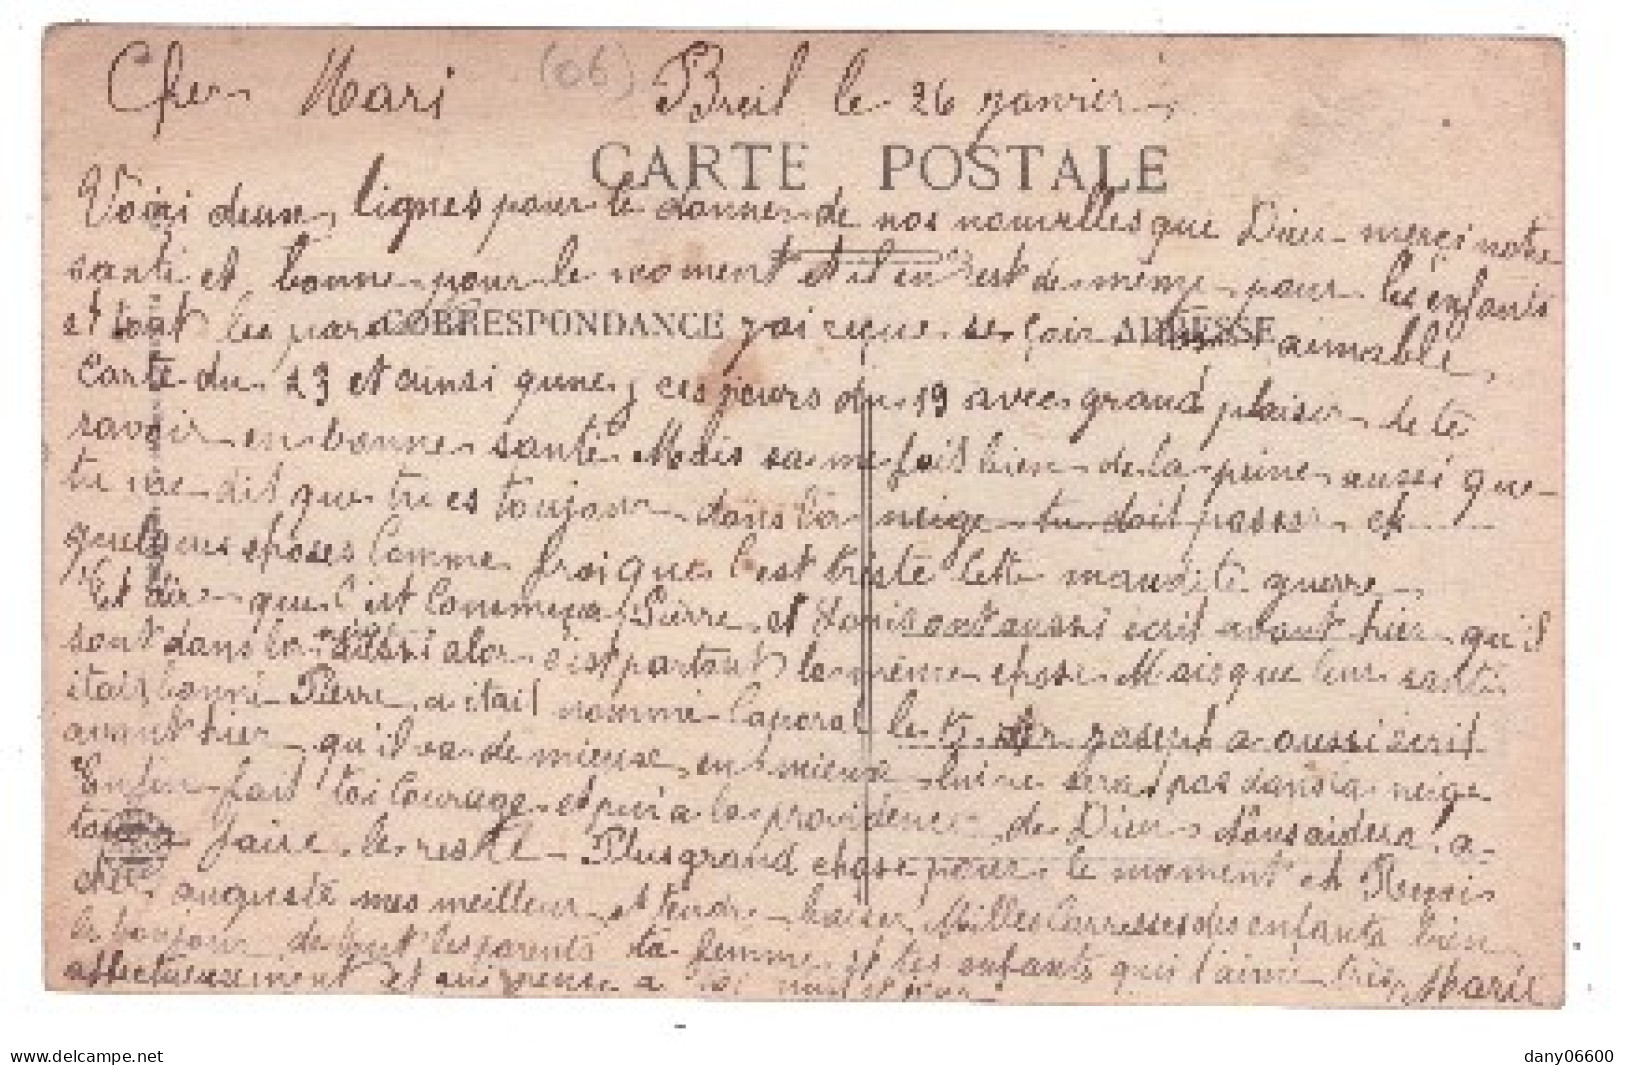 Cher Mari (06) Breil le 26 janvier
CARTE POSTALE
Voiçi deux lignes pour te donner de nos nouvelles que Dieu merçi notre
santé et bonne pour le moment et il en est de même pour les enfants
et tout les parents j'ai reçue se soir ton aimable
CORRESPONDANCE ADRESSE
Carte du 23 et ainsi qune ces jours du 19 avec grand plaisir de te
savoir en bonne santé Mais sa me fait bien de la peine aussi que
tu me dit que tu es toujour dans la neige tu doit passer
quelques choses comme froi que c'est triste cette maudite guerre
Et dire que c'est Commença Pierre et ont aussi écrit avant hier qu'il
sont dans la aussi alor c'est partout la même chose Mais que leur santé
était bonne Pierre a était nommé Caporal le 15 joseph a aussi écrit
avant hier qu'il va de mieux en mieux lui ne sera pas dans la neige
Enfin fait toi Courage et puis la providence de Dieu Nous aidera a
faire le reste Plus grand chose pour le moment Reçois
cher auguste mes meilleur et tendre baiser Milles Carresses des enfants bien
le bonjour de tout les parents ta femme et tes enfants qui t'aime très
affectueusement et qui pense a toi nuit et jour Marie
dany06600
www.delcampe.net